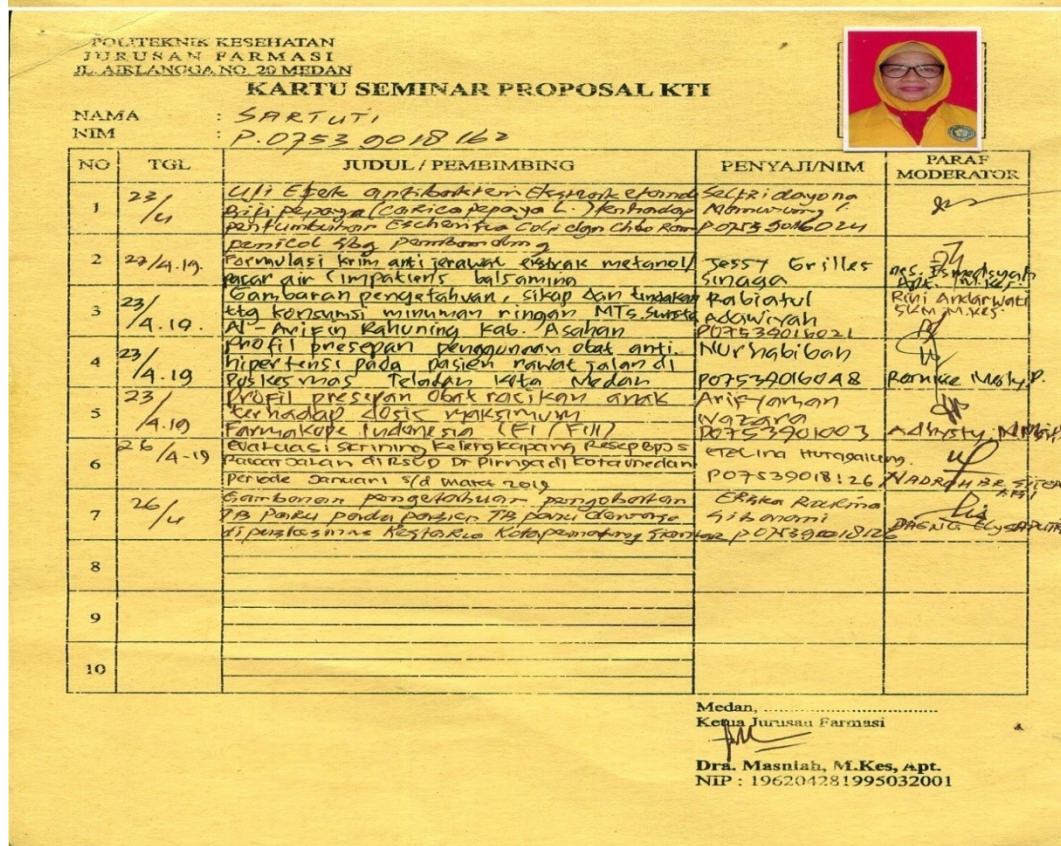 POLITEKNIK KESEHATAN
JURUSAN FARMASI
JL. AIRLANGGA NO. 20 MEDAN
KARTU SEMINAR PROPOSAL KTI
NAMA : SARTUTI
NIM : P.07539018162
NO TGL JUDUL / PEMBIMBING PENYAJI/NIM PARAF MODERATOR
1 23/4 Uji Efek antibakteri Ekstrak etanol
Biji pepaya (Carica pepaya L.) terhadap
pertumbuhan Escherichia Coli dgn
penicol sbg pembanding
P07539016024
2 27/4.19. Formulasi krim anti jerawat ekstrak metanol
pacar air (impatiens balsamina
Jessy Grilles
Sinaga
3 23/4.19. Gambaran pengetahuan, sikap dan tindakan
ttg konsumsi minuman ringan MTs. Swasta
Al-Arifin Rahuning Kab. Asahan
Rabiatul
Adawiyah
P07539016021
Rini Andarwati
SKM M.Kes.
4 23/4.19 profil presepan penggunaan obat anti
hipertensi pada pasien rawat jalan di
Puskesmas Teladan Kota Medan
Nurhabibah
P07539016048
5 23/4.19 Profil presepan Obat racikan anak
terhadap dosis maksimum
Farmakope Indonesia (FI / FIII)
P0753901003
6 26/4-19 Evaluasi skrining kelengkapang Resep BPJS
Rawat Jalan di RSUD Dr Pirngadi Kota medan
periode Januari s/d Maret 2019
P07539018126
7 26/4 Gambaran pengetahuan pengobatan
TB Paru pada pasien TB paru dewasa
di puskesmas
8
9
10
Medan, ....................................
Ketua Jurusan Farmasi
Dra. Masniah, M.Kes, Apt.
NIP : 196204281995032001